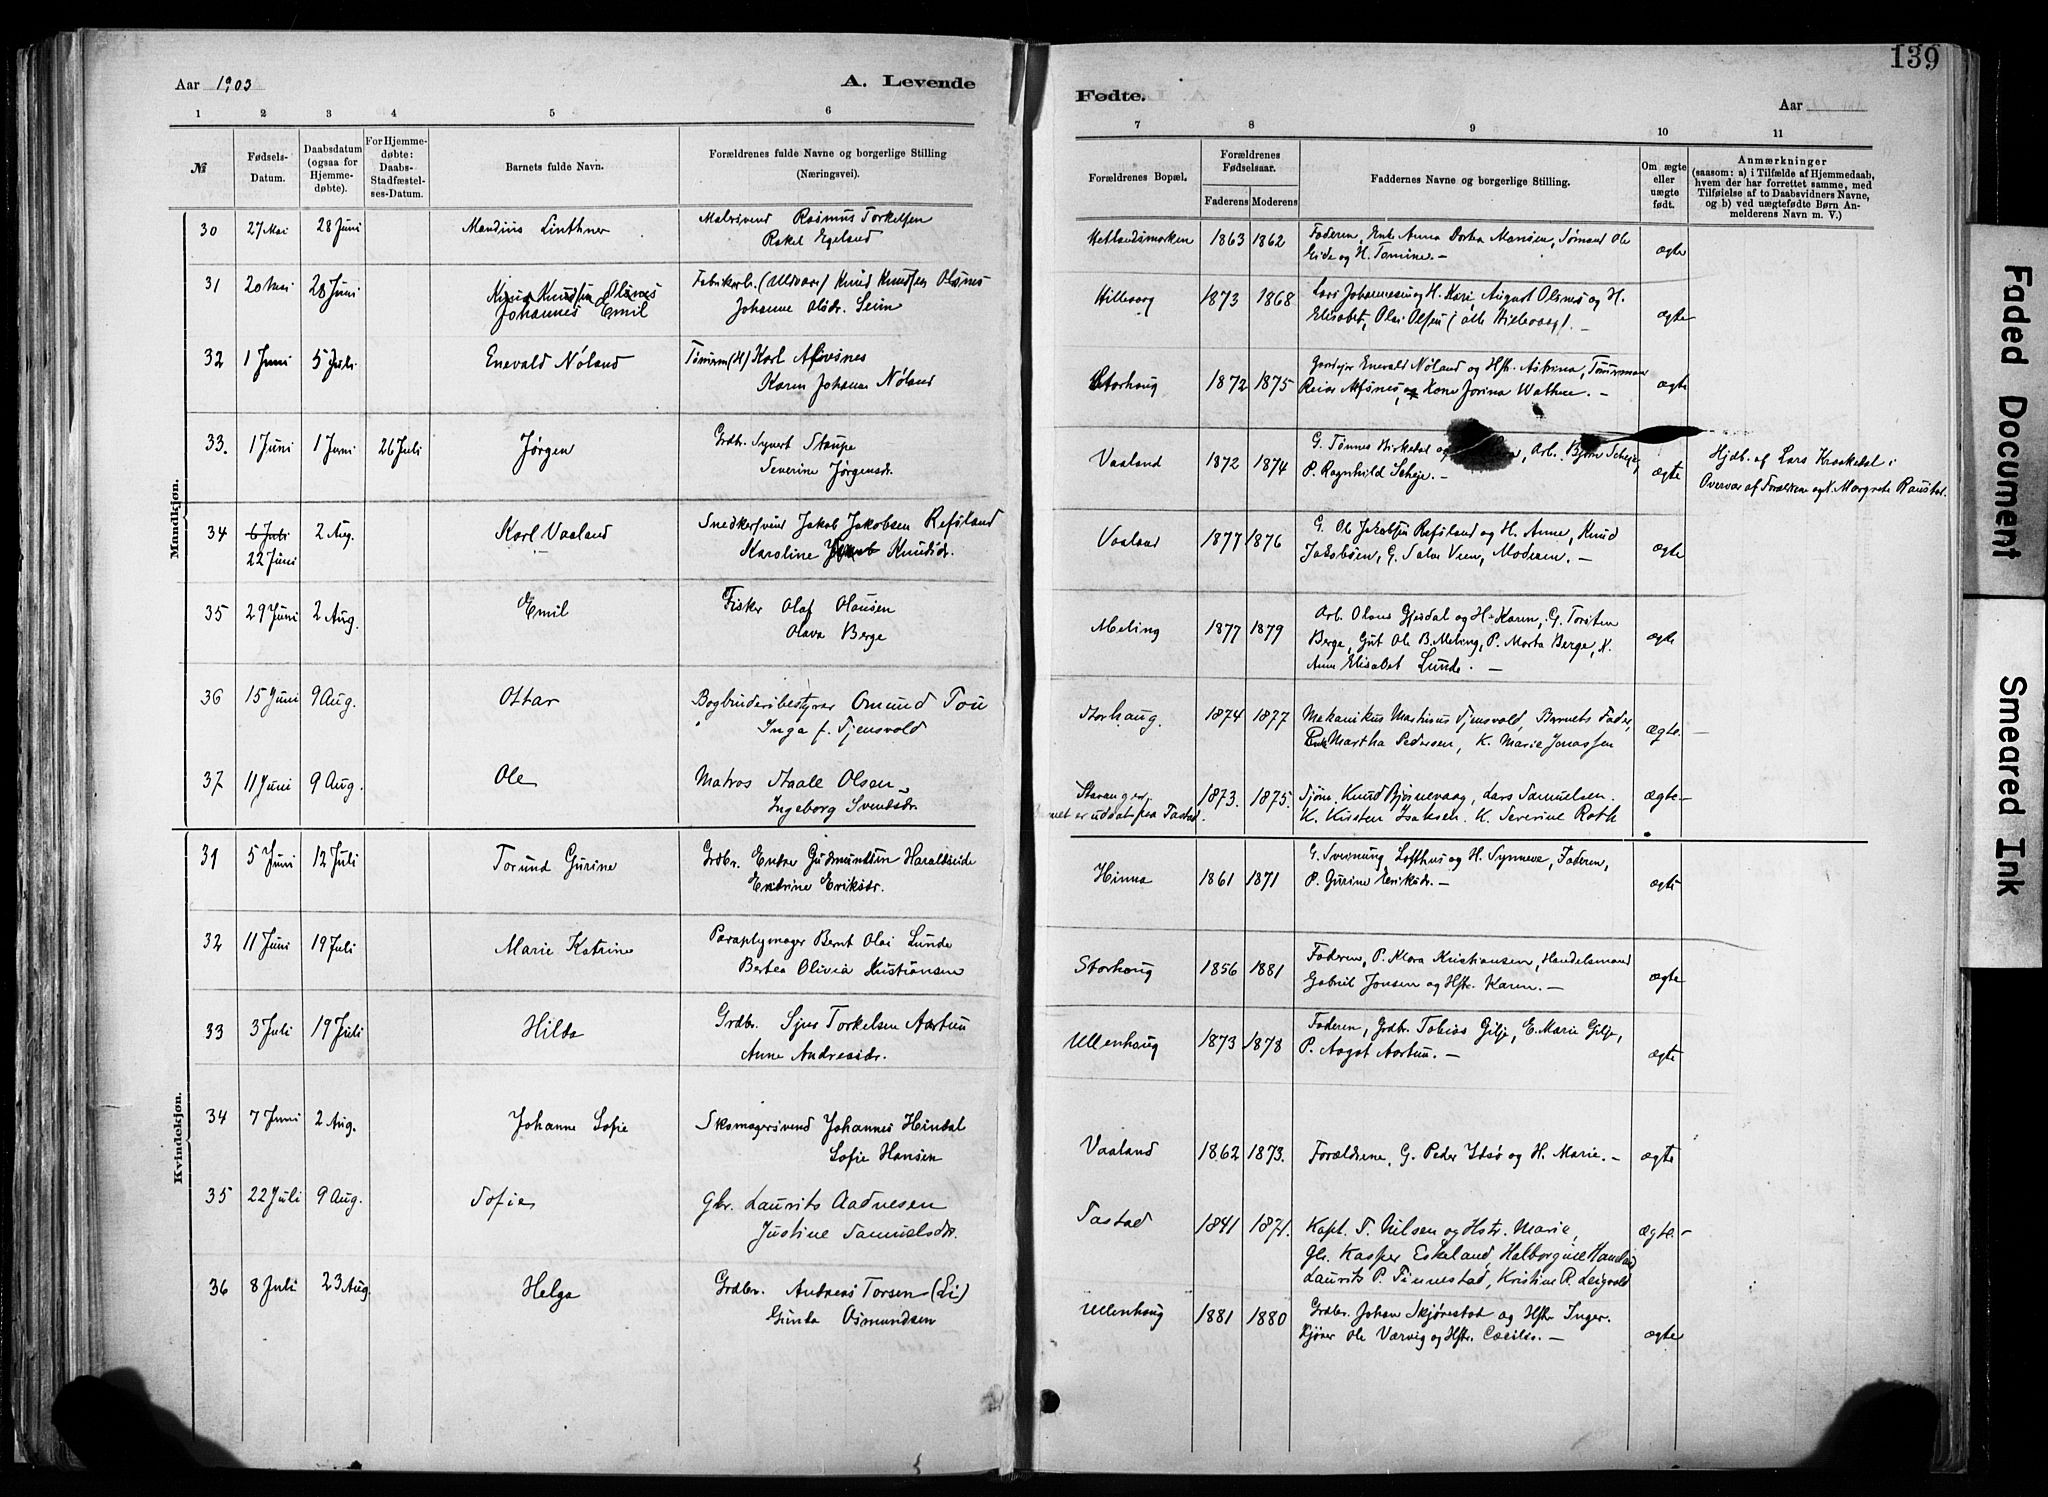 139
Aar 1903
A. Levende
Fødte.
Aar
1 2 3 4 5 6 7 8 9 10 11
№
Fødsels-Datum.
Daabsdatum (ogsaa for Hjemmedøbte).
For Hjemmedøbte: Daabs-Stadfæstelses-Datum.
Barnets fulde Navn.
Forældrenes fulde Navne og borgerlige Stilling (Næringsvei).
Forældrenes Bopæl.
Forældrenes Fødselsaar.
Faderens Moderens
Faddernes Navne og borgerlige Stilling.
Om ægte eller uægte født.
Anmærkninger (saasom: a) i Tilfælde af Hjemmedaab, hvem der har forrettet samme, med Tilføielse af to Daabsvidners Navne, og b) ved uægtefødte Børn Anmelderens Navn m. V.)
Mandkjøn.
30 27 Mai 28 Juni Mandius Linthner Malersvend Rasmus Torkelsen Hetlandsmarken 1863 1862 Faderen, Enke Anna Dortea Hansen, Sømand Ole
Rakel Egeland Eide og H. Tomine. — ægte
31 20 Mai 28 Juni Knud Knudsen Olsnes Fabrikarb. (Uldvar) Knud Knudsen Olsnes Hillevaag 1873 1868 Lars Johannesen og H. Kari, August Olsnes og H.
Johannes Emil Johanne Olsdr. Seim Elisabet, Olai Olsen (alle Hillevaag). — ægte
32 1 Juni 5 Juli Enevald Nøland Tømrm (H) Karl Alfsnes Storhaug 1872 1875 Gardejer Enevald Nøland og Hstr. Astrina, Tømmermand
Karen Johanne Nøland Reier Alfsnes, Kone Jorina Wathne. — ægte
33. 1 Juni 1 Juni 26 Juli Jørgen Grdbr. Syvert Staupe Vaaland 1872 1874 G. Tønnes Birkedal og Arb. Bjørn Scheje, Hjdb. af Lars Kraakedal i
Severine Jørgensdr. P. Ragnhild Scheje. — ægte Overvær af Forældrene og K. Margrete Raustad.
34 6 Juli 2 Aug. Karl Vaaland Snedkersvend Jakob Jakobsen Refsland Vaaland 1877 1876 G. Ole Jakobsen Refsland og H. Anne, Knud
22 Juni Karoline Knudsdr. Jakobsen, G. Salve Veen, Moderen. — ægte
35 29 Juni 2 Aug. Emil Fisker Olaf Olausen Meling 1877 1879 Arb. Olaus Gjesdal og H. Karen, G. Torsten
Olava Berge Berge, Gut Ole B. Meling, P. Marta Berge, K.
Anne Elisabet Lunde. — ægte
36 15 Juni 9 Aug. Ottar Bogbinderibestyrer Omund Tou Storhaug. 1874 1877 Mekanikus Martinus Tjensvold, Barnets Fader,
Inga f. Tjensvold Martha Pedersen, K. Marie Jonassen ægte. —
37 11 Juni 9 Aug. Ole Matros Staale Olsen Stavanger. 1873. 1875. Sjøm. Knud Bjørnevaag, Lars Samuelsen.
Ingeborg Svendsdr. Barnet er uddat paa Tastad. K. Kirsten Isaksen. K. Severine Roth ægte —
Kvindekjøn.
31 5 Juni 12 Juli Torund Gurine Grdbr. Endre Gudmundsen Haraldseide Hinna 1861 1871 G. Sveinung Lofthus og H. Synneve, Faderen,
Endrine Eriksdr. P. Gurine Eriksdr. — ægte
32 11 Juni 19 Juli Marie Katrine Paraplymager Bernt Olai Lunde Storhaug 1856 1881 Faderen, P. Klara Kristiansen, Handelsmand
Bertea Olivia Kristiansen Gabriel Jonsen og Hstr. Karen. — ægte
33 3 Juli 19 Juli Hilda Grdbr. Sjur Torkelsen Aartun Ullenhaug 1873 1878 Faderen, Grdbr. Tobias Gilje, E. Marie Gilje,
Anne Andreasdr. P. Aagot Aartun. — ægte
34 7 Juni 2 Aug. Johanne Sofie Skomagersvend Johannes Heindal Vaaland 1862 1873. Forældrene, G. Peder Idsø og H. Marie. — ægte
Sofie Hansen
35 22 Juli 9 Aug. Sofie Gbr. Laurits Aadnesen Tastad 1841 1871. Kapt. T. Nilsen og Hstr. Marie, ægte. —
Justine Samuelsdr. Gbr. Kasper Eskeland, Halborgine
Laurits P. Finnestad, Kristine R. Leigvold
36 8 Juli 23 Aug. Helga Grdbr. Andreas Torsen (Li) Ullenhaug 1881 1880 Grdbr. Johan Skjørestad og Hstr. Inger.
Gunda Osmundsen Kjører OleVærvig og Hstr. Cecilie. — ægte
Faded Document
Smeared Ink